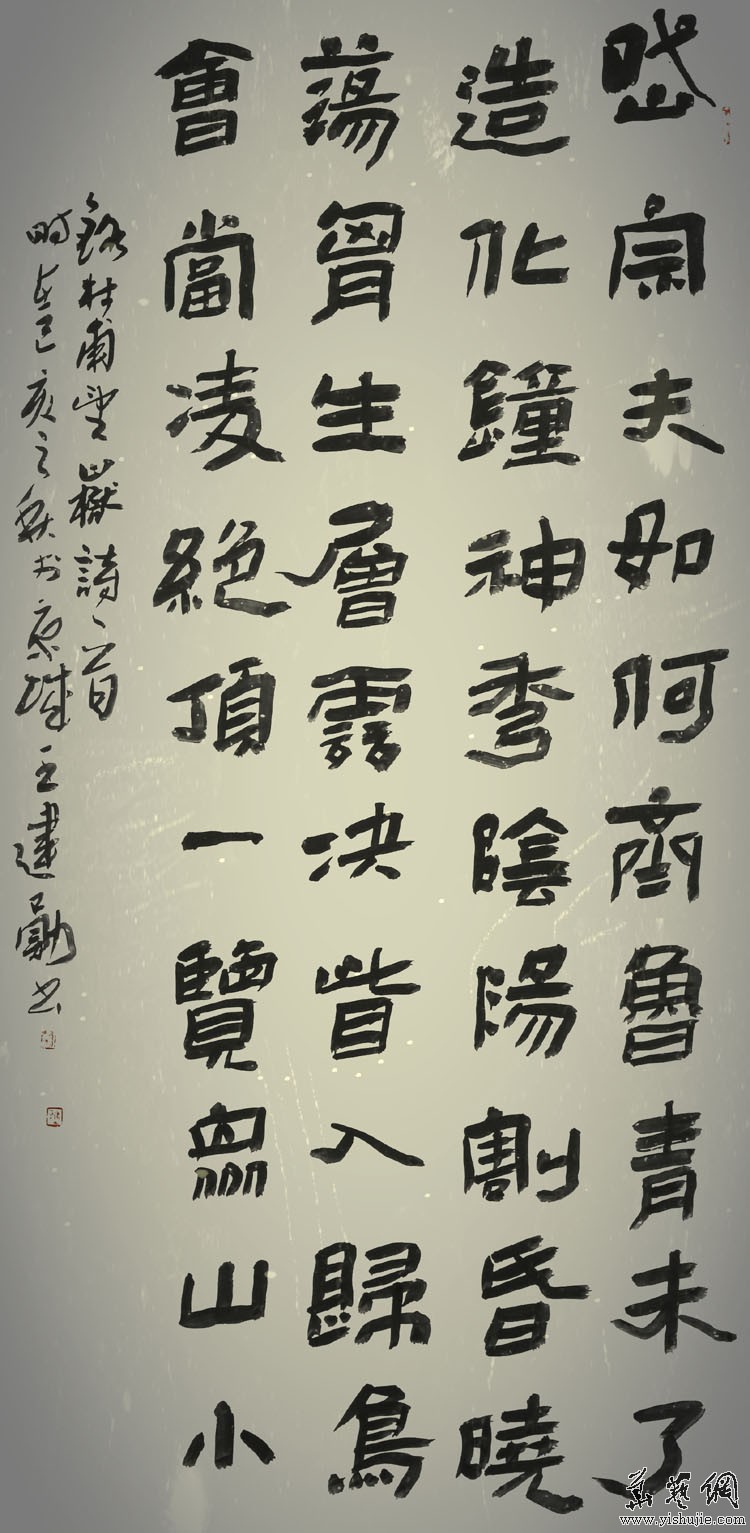 岱宗夫如何齊魯青未了
造化鐘神秀陰陽割昏曉
蕩胷生層雲决眥入歸鳥
會當凌絕頂一覽眾山小
錄杜甫望嶽詩一首
時在己亥之秋於京城王建勛书
華藝網
www.yishujie.com